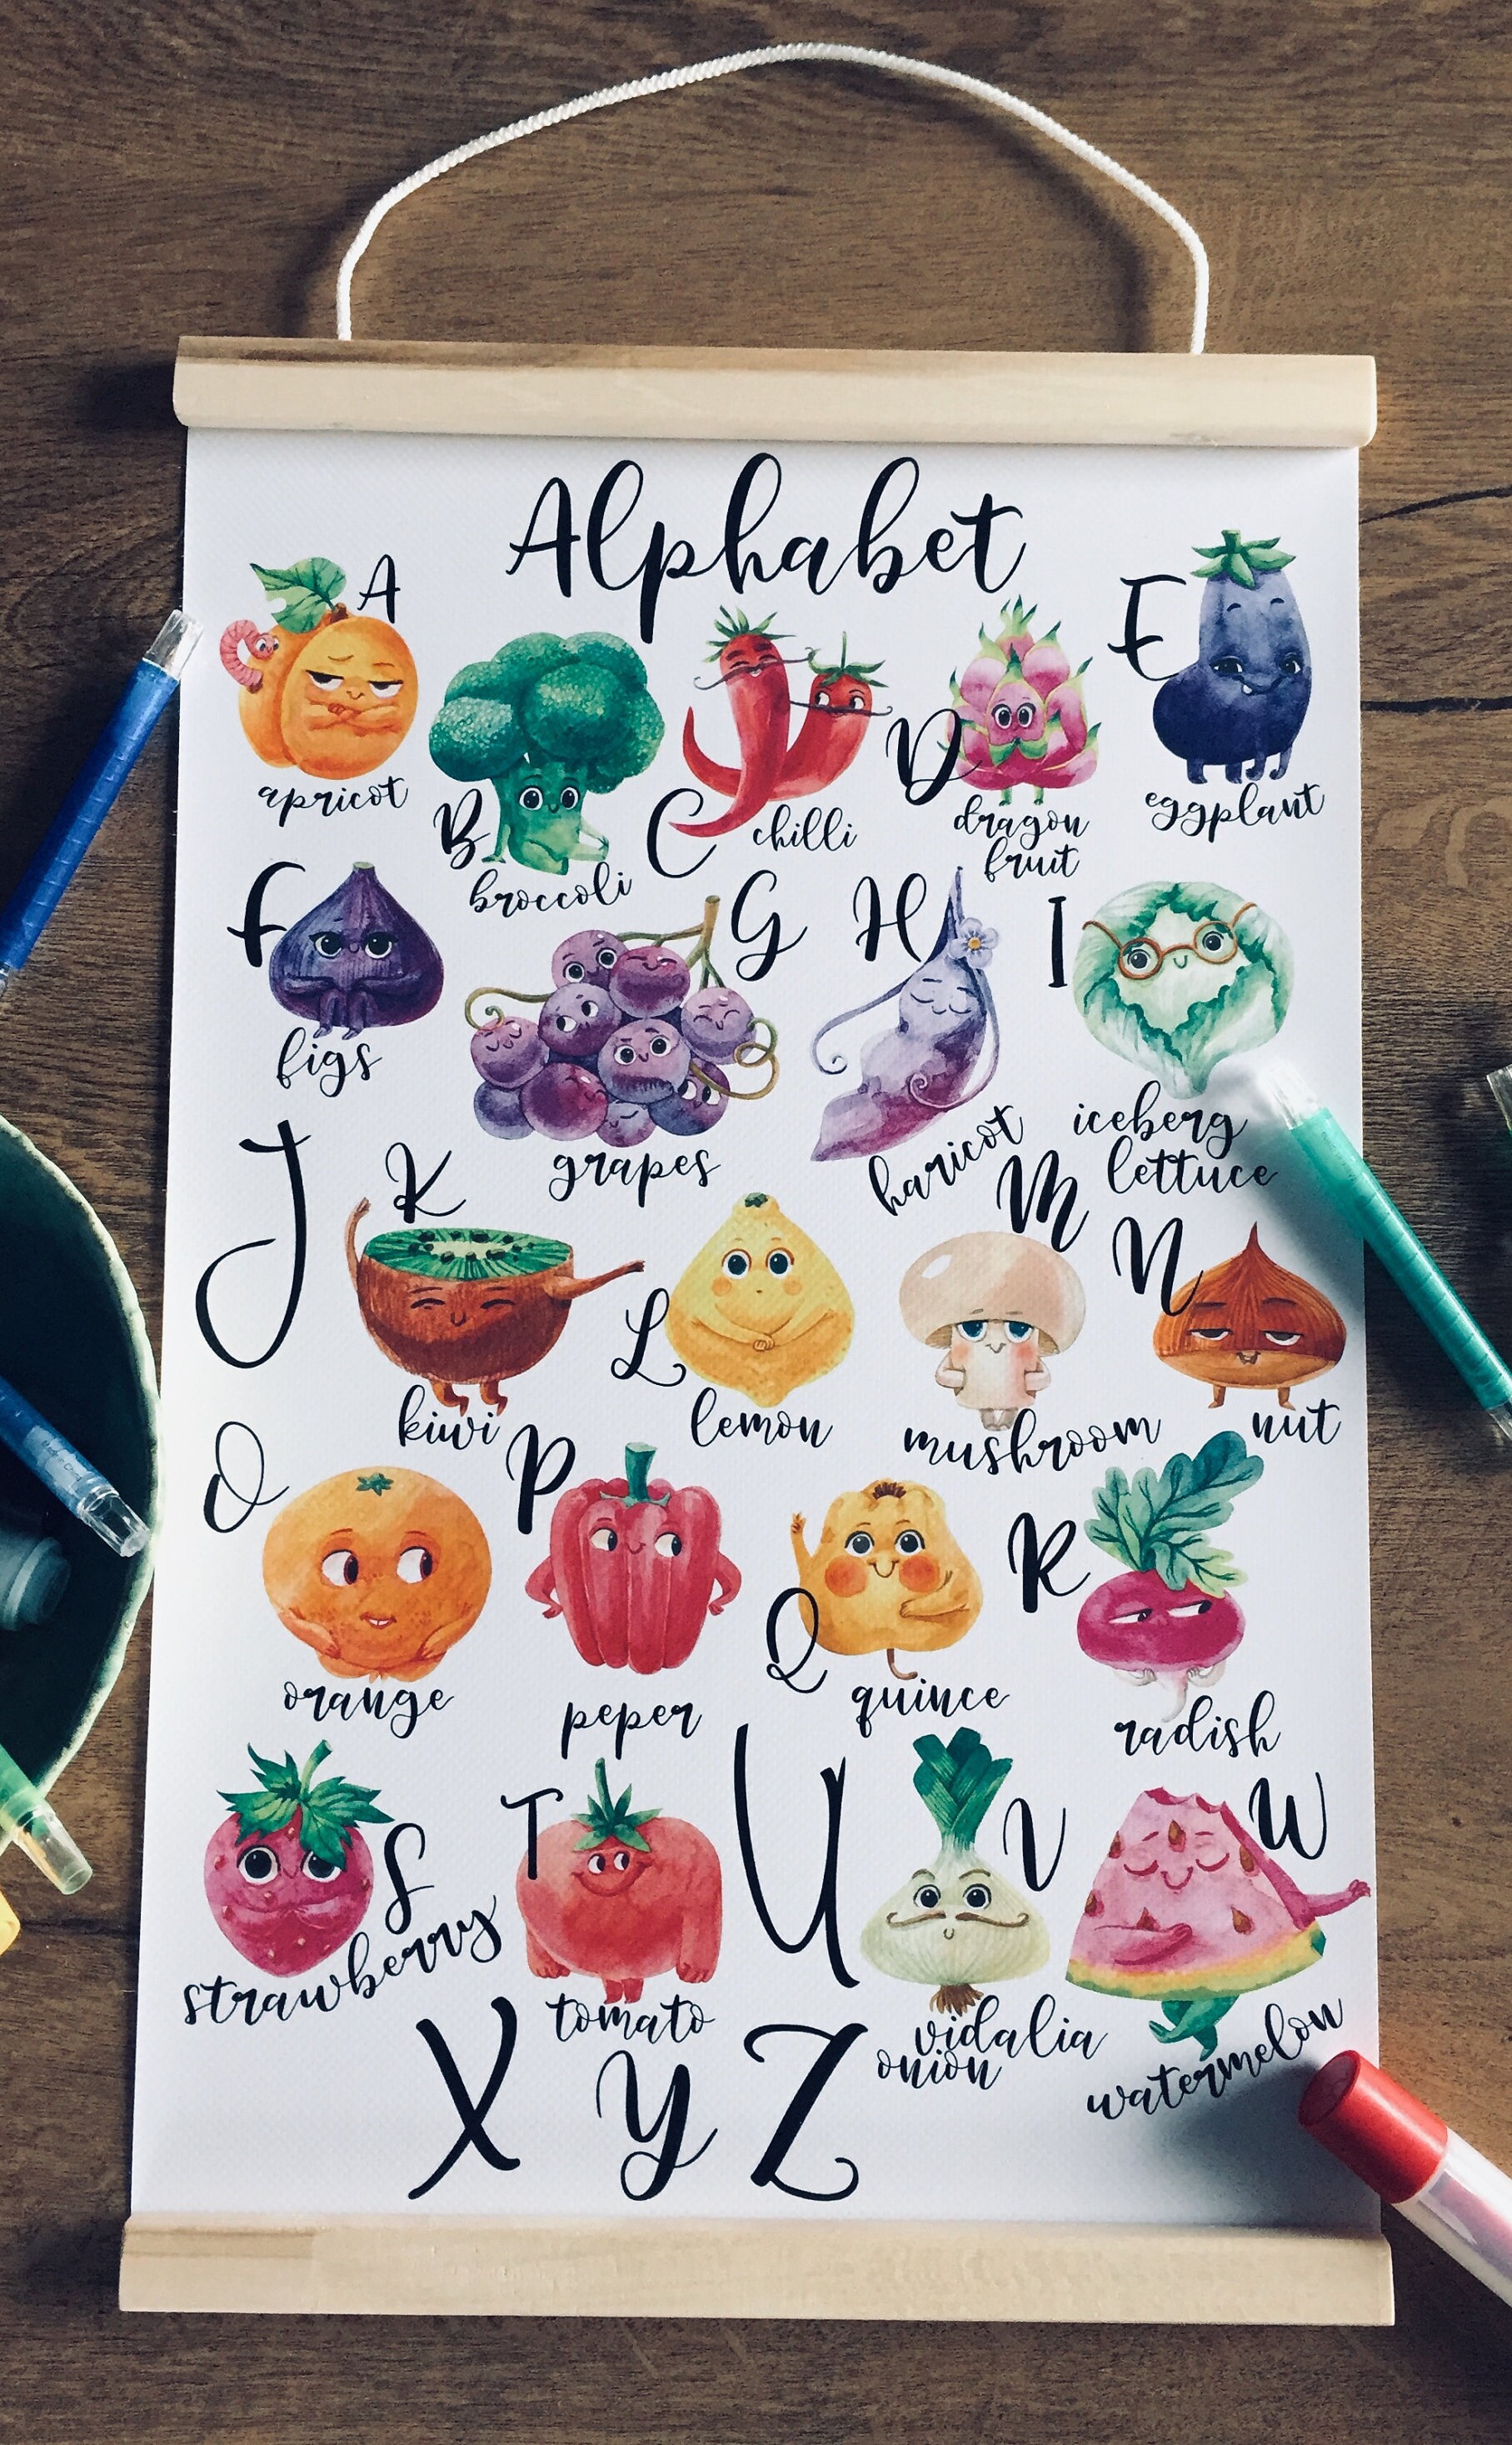 Alphabet
A
apricot
B
broccoli
C
chilli
D
dragon
fruit
E
eggplant
F
figs
G
grapes
H
haricot
I
iceberg
lettuce
J
K
kiwi
L
lemon
M
mushroom
N
nut
O
orange
P
peper
Q
quince
R
radish
S
strawberry
T
tomato
U
V
vidalia
onion
W
watermelon
X
Y
Z
Made in China